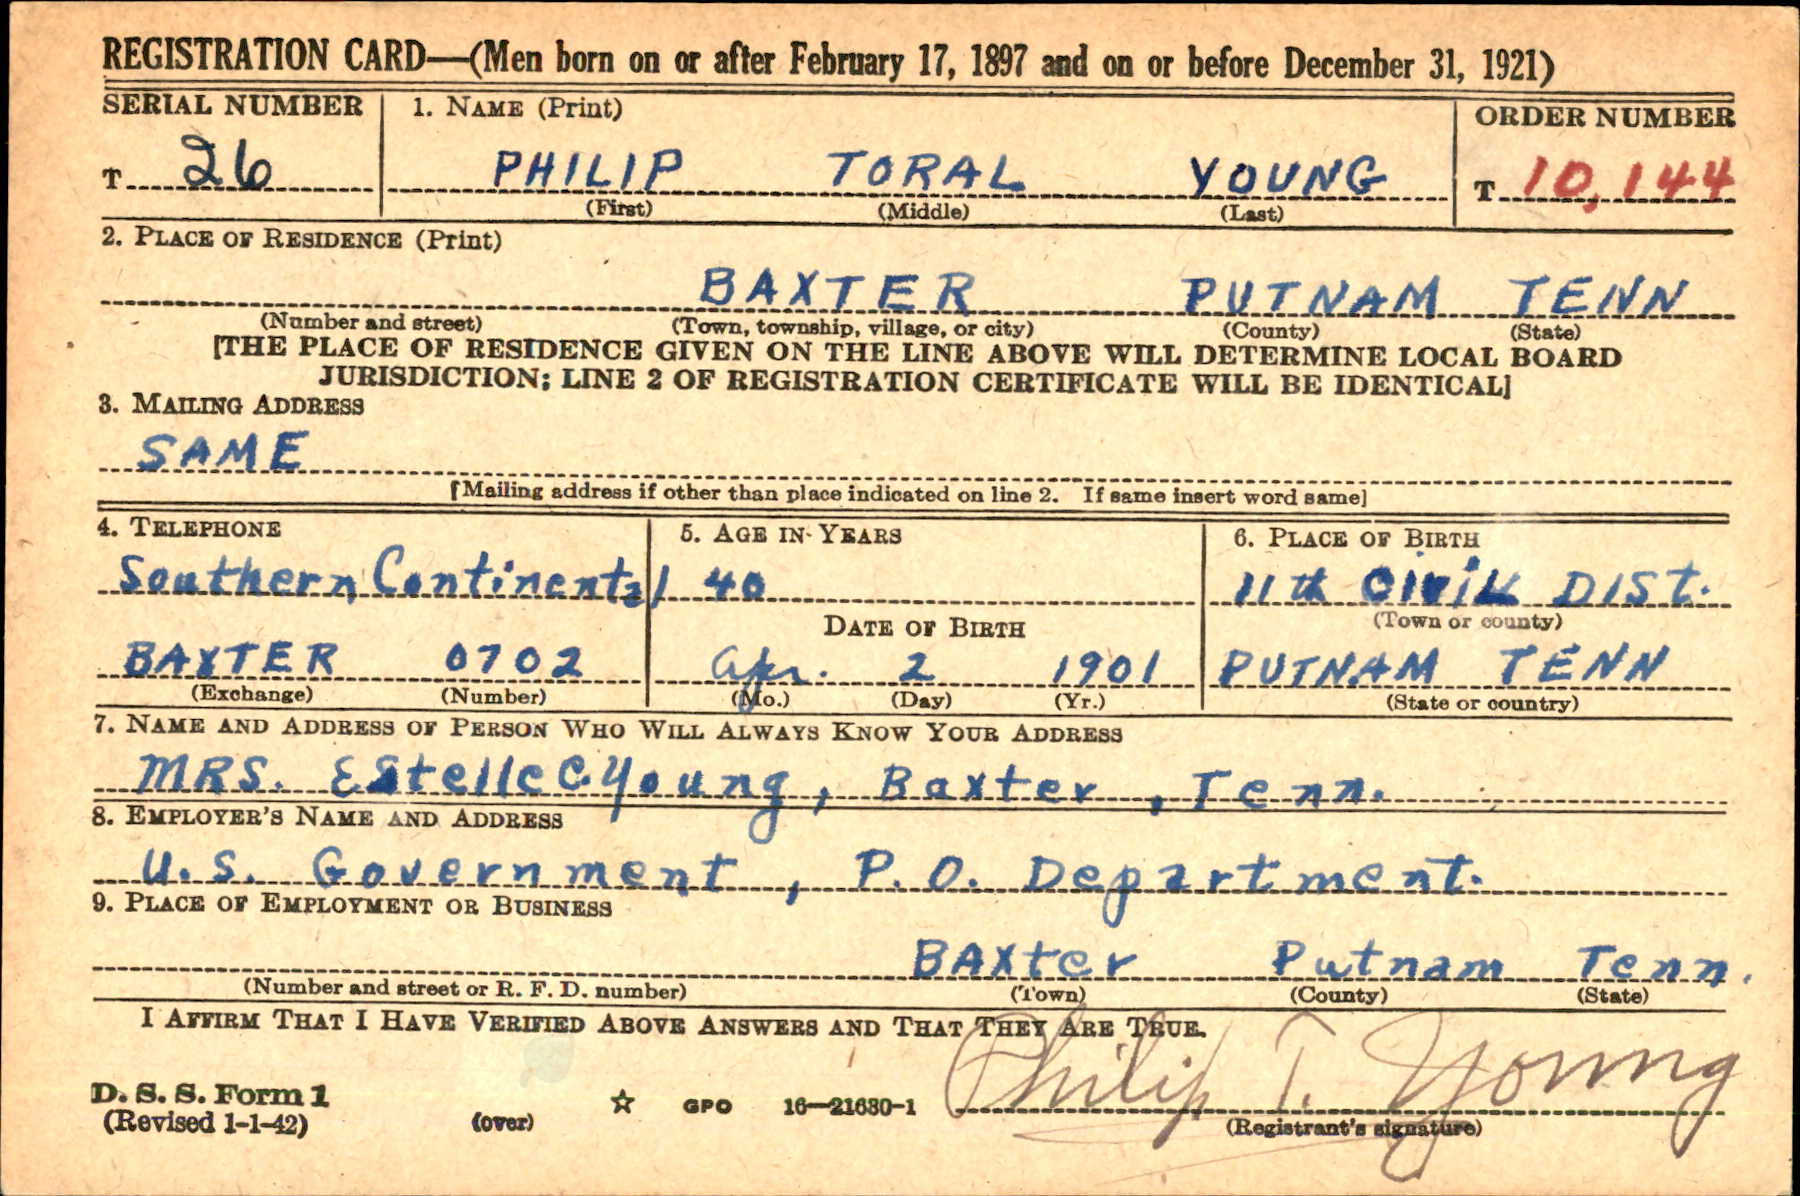 REGISTRATION CARD—(Men born on or after February 17, 1897 and on or before December 31, 1921)
SERIAL NUMBER 1. NAME (Print) ORDER NUMBER
T 26 PHILIP TORAL YOUNG T 10,144
(First) (Middle) (Last)
2. PLACE OF RESIDENCE (Print)
BAXTER PUTNAM TENN
(Number and street) (Town, township, village, or city) (County) (State)
[THE PLACE OF RESIDENCE GIVEN ON THE LINE ABOVE WILL DETERMINE LOCAL BOARD
JURISDICTION; LINE 2 OF REGISTRATION CERTIFICATE WILL BE IDENTICAL]
3. MAILING ADDRESS
SAME
[Mailing address if other than place indicated on line 2. If same insert word same]
4. TELEPHONE 5. AGE IN YEARS 6. PLACE OF BIRTH
Southern Continental 40 11th Civil DIST.
DATE OF BIRTH (Town or county)
BAXTER 0702 Apr. 2 1901 PUTNAM TENN
(Exchange) (Number) (Mo.) (Day) (Yr.) (State or country)
7. NAME AND ADDRESS OF PERSON WHO WILL ALWAYS KNOW YOUR ADDRESS
MRS. EStelle C. Young, Baxter, Tenn.
8. EMPLOYER'S NAME AND ADDRESS
U.S. Government, P.O. Department.
9. PLACE OF EMPLOYMENT OR BUSINESS
BAXter Putnam Tenn.
(Number and street or R. F. D. number) (Town) (County) (State)
I AFFIRM THAT I HAVE VERIFIED ABOVE ANSWERS AND THAT THEY ARE TRUE.
Philip T. Young
D. S. S. Form 1
(Revised 1-1-42) (over) ☆ GPO 16—21630-1 (Registrant's signature)